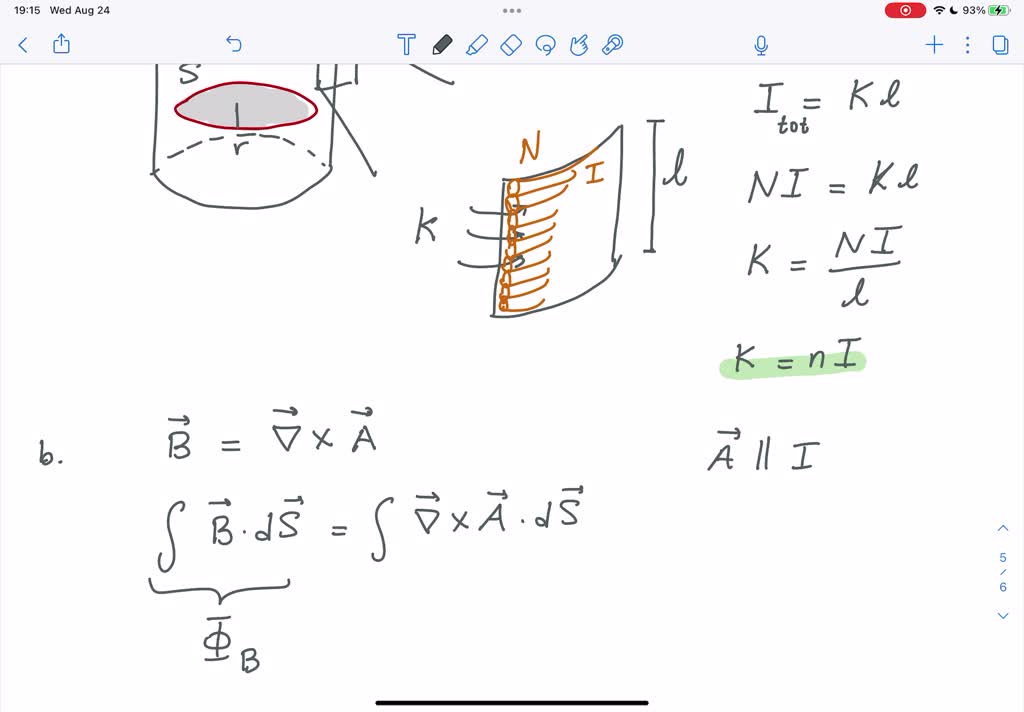 19:15 Wed Aug 24
93%
S
r
N
I
l
K
I_tot = Kl
NI = Kl
K = NI/l
K = nI
b.
B⃗ = ∇⃗ × A⃗
A⃗ ∥ I
∫ B⃗ · dS⃗ = ∫ ∇⃗ × A⃗ · dS⃗
Φ_B
5
/
6